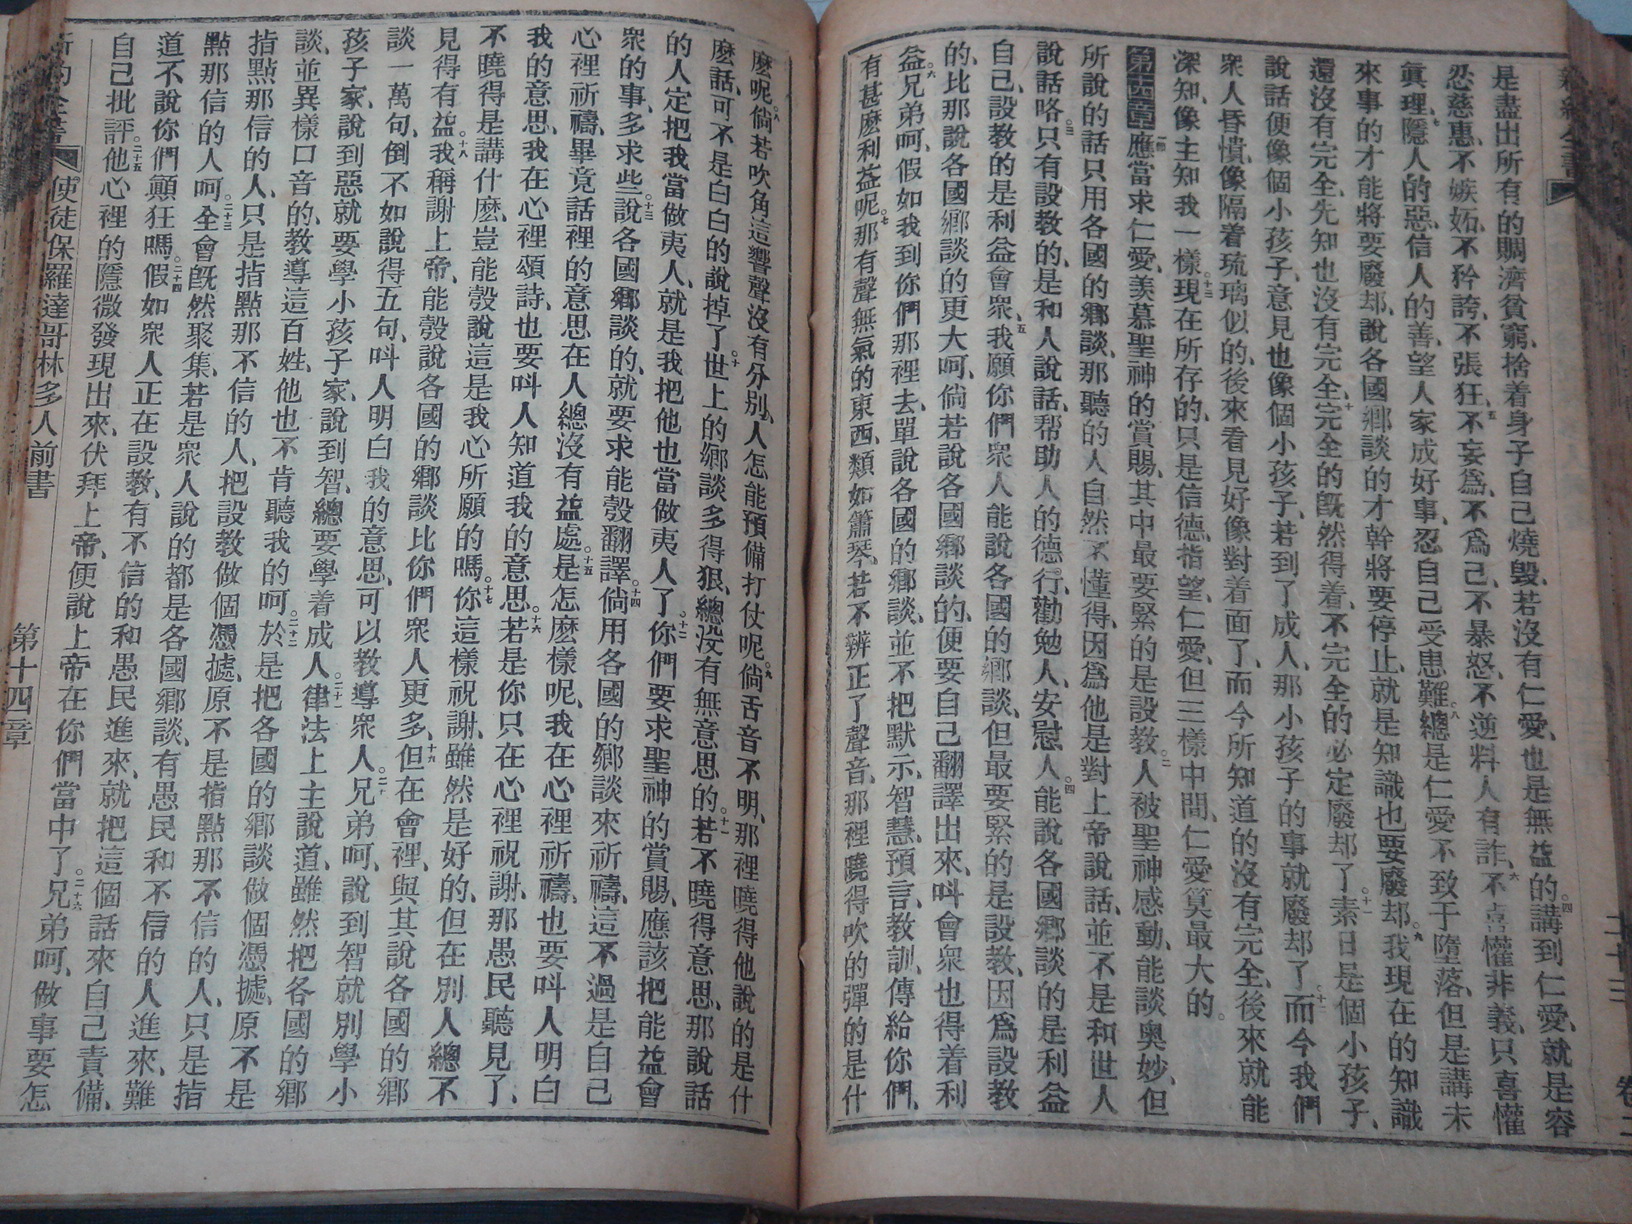 是盡出所有的賙濟貧窮、捨着身子自己燒毀、若沒有仁愛、也是無益的。四講到仁愛、就是容
忍慈惠、不嫉妬、不矜誇、不張狂、五不妄為、不為己、不暴怒、不逆料人有詐、六不喜懽非義、只喜懽
眞理、七隱人的惡、信人的善、望人家成好事、忍自己受患難。八總是仁愛不致于墮落、但是講未
來事的才能將要廢却、說各國鄉談的才幹將要停止、就是知識也要廢却。九我現在的知識
還沒有完全、先知也沒有完全、十完全的旣然得着、不完全的必定廢却了。十一素日是個小孩子、
說話便像個小孩子、意見也像個小孩子、若到了成人、那小孩子的事就廢却了。十二而今我們
衆人昏憒、像隔着琉璃似的、後來看見好像對着面了、而今所知道的沒有完全、後來就能
深知、像主知我一樣。十三現在所存的、只是信德、指望、仁愛、但三樣中間、仁愛算最大的。
第十四章一節應當求仁愛、羨慕聖神的賞賜、其中最要緊的是設教。二人被聖神感動、能談奧妙、但
所說的話只用各國的鄉談、那聽的人自然不懂得、因為他是對上帝說話、並不是和世人
說話咯。三只有設教的、是和人說話、帮助人的德行、勸勉人、安慰人。四能說各國鄉談的是利益
自己、設教的是利益會衆。五我願你們衆人能說各國的鄉談、但最要緊的是設教、因為設教
的、比那說各國鄉談的更大、呵、倘若說各國鄉談的、便要自己翻譯出來、叫會衆也得着利
益。六兄弟呵、假如我到你們那裡去、單說各國的鄉談、並不把默示、智慧、預言、教訓、傳給你們、
有甚麽利益呢。七那有聲無氣的東西、類如簫琴、若不辨正了聲音、那裡曉得吹的彈的是什
麽呢。八倘若吹角這響聲沒有分别、人怎能預備打仗呢。九倘舌音不明、那裡曉得他說的是什
麽話、可不是白白的說掉了。十世上的鄉談多得狠、總沒有無意思的。十一若不曉得意思、那說話
的人定把我當做夷人、就是我把他也當做夷人了。十二你們要求聖神的賞賜、應該把能益會
衆的事、多求些。十三說各國鄉談的、就要求能彀翻譯。十四倘用各國的鄉談來祈禱、這不過是自己
心裡祈禱、畢竟話裡的意思在人總沒有益處。十五是怎麽樣呢、我在心裡祈禱、也要呌人明白
我的意思、我在心裡頌詩、也要呌人知道我的意思。十六若是你只在心裡祝謝、那愚民聽見了、
不曉得是講什麽、豈能彀說這是我心所願的嗎。十七你這樣祝謝、雖然是好的、但在别人總不
見得有益。十八我稱謝上帝、能彀說各國的鄉談比你們衆人更多、十九但在會裡、與其說各國的鄉
談一萬句、倒不如說得五句、呌人明白我的意思、可以教導衆人。二十兄弟呵、說到智就别學小
孩子家、說到惡就要學小孩子家、說到智、總要學着成人。二十一律法上主說道、雖然把各國的鄉
談、並異樣口音的、教導這百姓、他也不肯聽我的呵。二十二於是把各國的鄉談做個憑據、原不是
指點那信的人、只是指點那不信的人、把設教做個憑據、原不是指點那不信的人、只是指
點那信的人呵。二十三全會旣然聚集、若是衆人說的都是各國鄉談、有愚民和不信的人進來、難
道不說你們顚狂嗎。二十四假如衆人正在設教、有不信的和愚民進來、就把這個話來自己責備、
自己批評。二十五他心裡的隱微發現出來、伏拜上帝、便說上帝在你們當中了。二十六兄弟呵、做事要怎
使徒保羅達哥林多人前書 第十四章